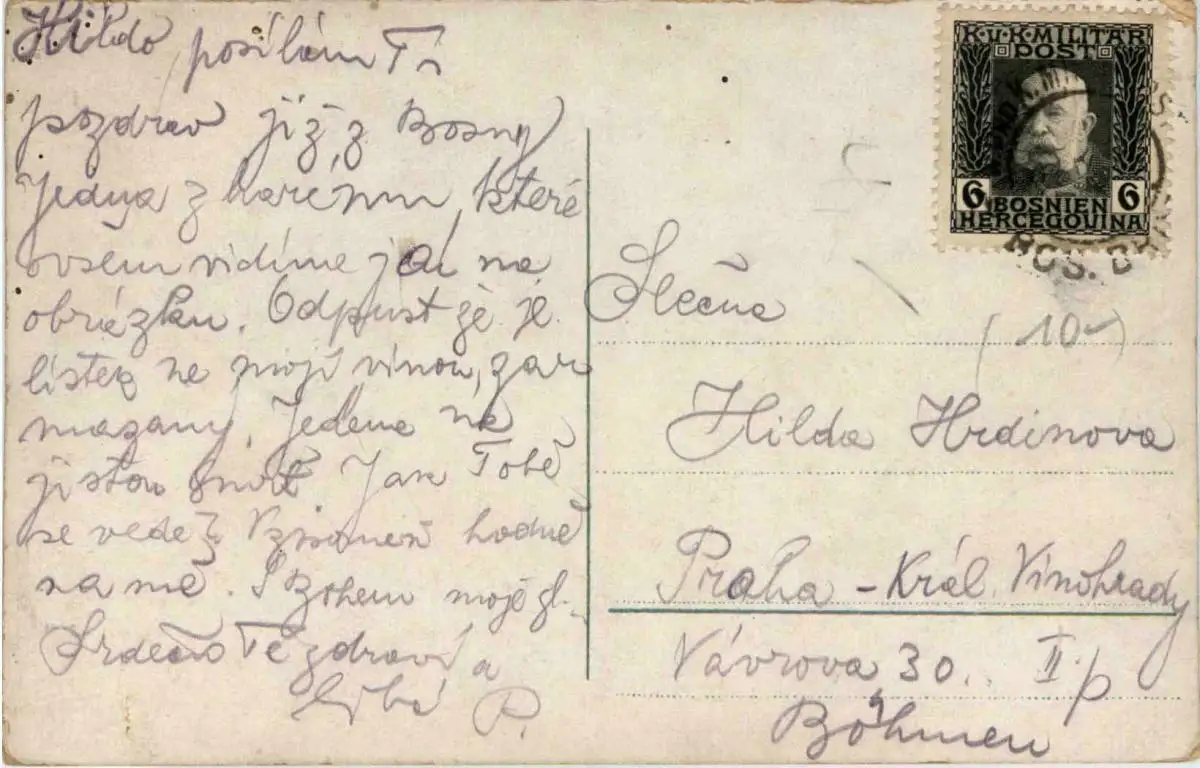 Hildo posílám Ti
pozdrav již z Bosny
Jedna z harému, které
ovšem vidíme jen na
obrázku. Odpust že je
lístek ne mojí vinou,
mazaný. Jedeme na
jistou smrt. Jak Tobě
se vede? Vzpomeň hodně
na mě. S Bohem moje
Srdečně Tě zdraví a
líbá P.
K.u.K. MILITÄR
POST
6 6
BOSNIEN
HERCEGOVINA
(10-)
Slečna
Hilda Hrdinova
Praha - Král. Vinohrady
Vávrova 30. II. p
Böhmen